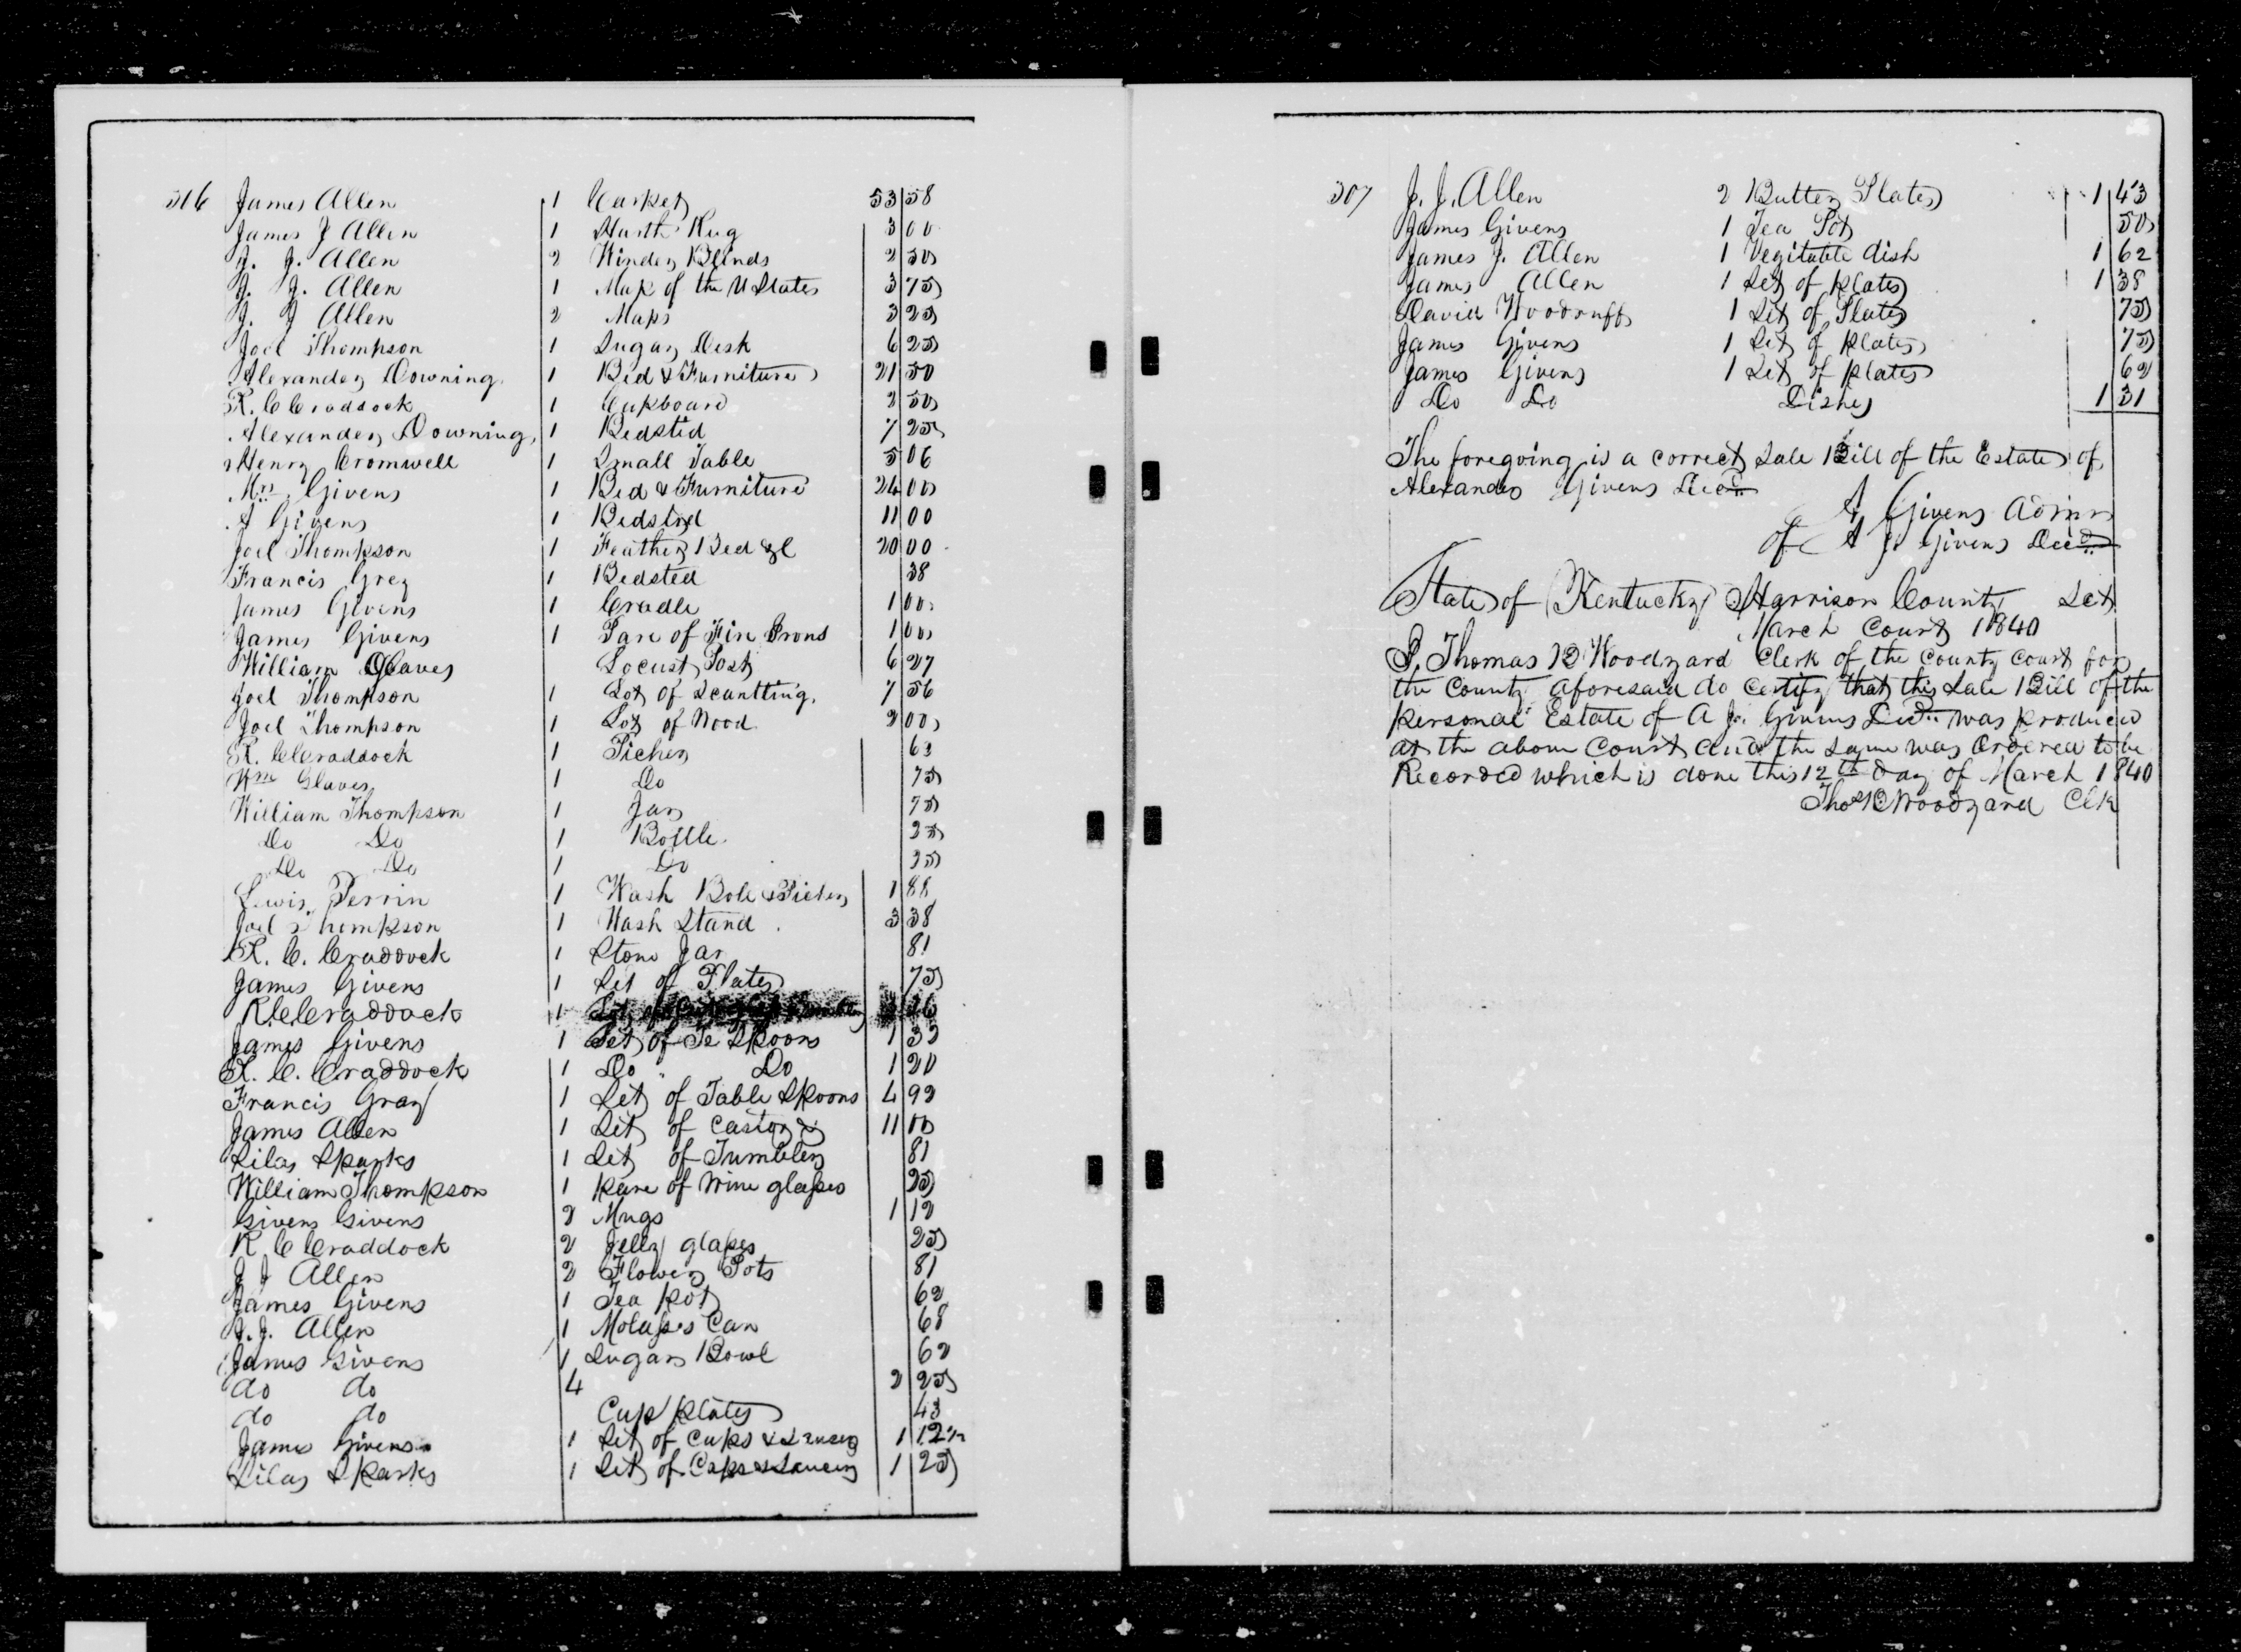 316 James Allen 1 Carpet 53 58
James J Allen 1 Harth Rug 3 00
J. J. Allen 2 Winder Blinds 2 50
J. J. Allen 1 Map of the U States 3 75
J. J Allen 2 Maps 3 25
Joel Thompson 1 Sugar Desk 6 25
Alexander Downing 1 Bed & Furniture 21 50
R. C Craddock 1 Cupboard 2 50
Alexander Downing 1 Bedsted 7 25
Henry Cromwell 1 Small Table 5 06
Mrs Givens 1 Bed & Furniture 24 00
A Givens 1 Bedsted 11 00
Joel Thompson 1 Feather Bed &c 20 00
Francis Grey 1 Bedsted 38
James Givens 1 Cradle 1 00
James Givens 1 Pare of Fire Irons 1 00
William Glaves Locust Posts 6 27
Joel Thompson 1 Lot of Scantling 7 56
Joel Thompson 1 Lot of Wood 2 00
R. C Craddock 1 Picher 63
Wm Glaves 1 Do 75
William Thompson 1 Jar 75
Do Do 1 Bottle 25
Do Do 1 Do 25
Lewis Perrin 1 Wash Bole & Picher 1 88
Joel Thompson 1 Wash Stand 3 38
R. C. Craddock 1 Stone Jar 81
James Givens 1 Set of Plates 75
R C Craddock 1
James Givens 1 Set of Te Spoons 1 33
R. C. Craddock 1 Do Do 1 20
Francis Gray 1 Set of Table Spoons 4 92
James Allen 1 Set of Castors 11 00
Silas Sparks 1 Set of Tumbler 81
William Thompson 1 pare of Wine glasses 25
Givens Givens 2 Mugs 1 12
R C Craddock 2 Jelly glasses 25
J J Allen 2 Flower Pots 81
James Givens 1 Tea pot 62
J. J. Allen 1 Molasses Can 68
James Givens 1 Sugar Bowl 62
do do 4 2 25
do do Cup plates 43
James Givens 1 Set of Cups & Saucers 1 12½
Silas Sparks 1 Set of Cups & Saucers 1 25
307 J. J. Allen 2 Butter Plates 1 43
James Givens 1 Tea Pot 50
James J. Allen 1 Vegitable dish 1 62
James Allen 1 Set of plates 1 38
David Woodruff 1 Set of Plates 75
James Givens 1 Set of plates 75
James Givens 1 Set of plates 62
Do Do Dishes 1 31
The foregoing is a correct Sale Bill of the Estate of
Alexander Givens Decd
A Givens Admr
of A J. Givens Decd
State of Kentucky Harrison County Sct
March Court 1840
I, Thomas B Woodyard Clerk of the County Court for
the County aforesaid do Certify that this Sale Bill of the
personal Estate of A Jr Givens Decd was produced
at the above Court and the same was Ordered to be
Recorded which is done this 12th day of March 1840
Thos B Woodyard Clk